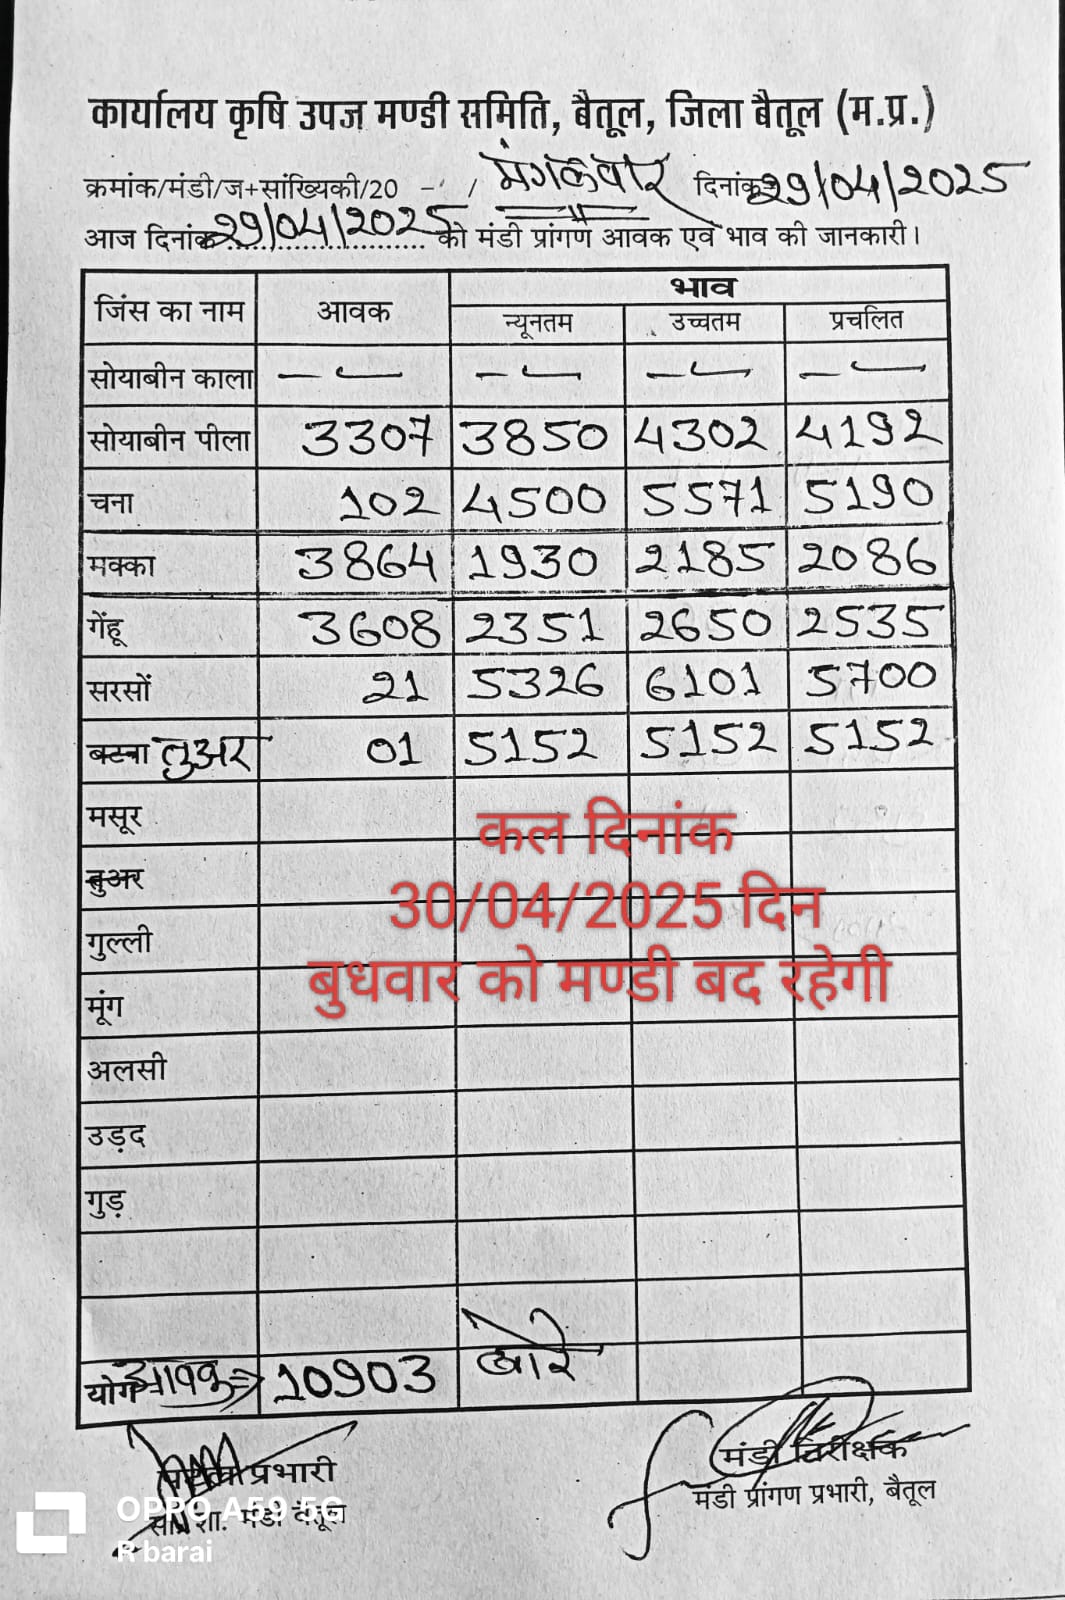 कार्यालय कृषि उपज मण्डी समिति, बैतूल, जिला बैतूल (म.प्र.)
क्रमांक/मंडी/ज+सांख्यिकी/20 - / मंगलवार दिनांक 29/04/2025
आज दिनांक 29/04/2025 को मंडी प्रांगण आवक एवं भाव की जानकारी।
जिंस का नाम आवक भाव
न्यूनतम उच्चतम प्रचलित
सोयाबीन काला — — — —
सोयाबीन पीला 3307 3850 4302 4192
चना 102 4500 5571 5190
मक्का 3864 1930 2185 2086
गेंहू 3608 2351 2650 2535
सरसों 21 5326 6101 5700
बटना तुअर 01 5152 5152 5152
मसूर
तुअर
गुल्ली
मूंग
अलसी
उड़द
गुड़
कल दिनांक
30/04/2025 दिन
बुधवार को मण्डी बद रहेगी
योग आवक 10903 बोरे
प्रभारी
मंडी बैतूल
मंडी निरीक्षक
मंडी प्रांगण प्रभारी, बैतूल
OPPO A59 5G
R barai